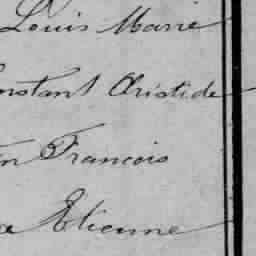 Louis Marie
onstant Aristide
en Francois
a Etienne